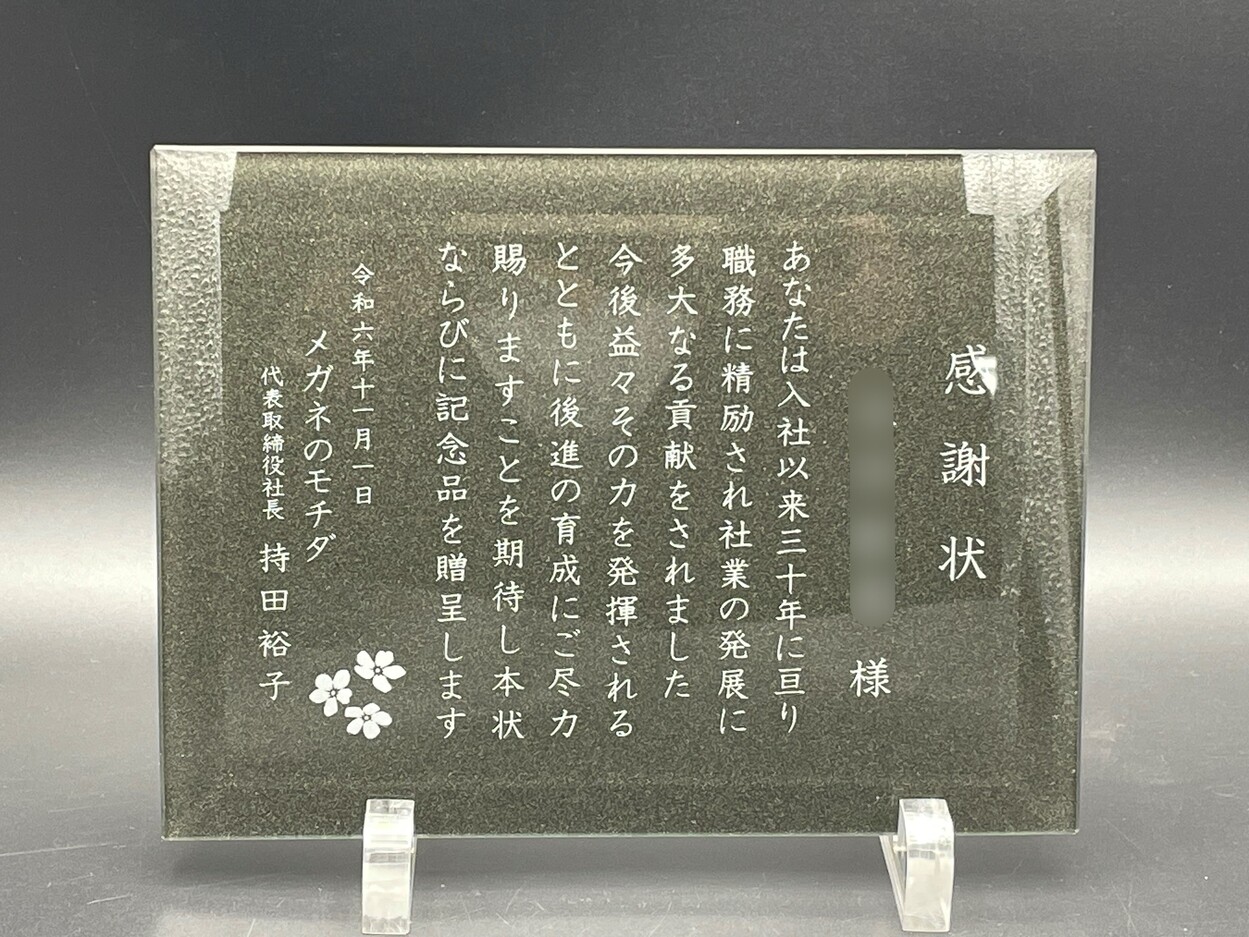 感謝状
様
あなたは入社以来三十年に亘り
職務に精励され社業の発展に
多大なる貢献をされました
今後益々その力を発揮される
とともに後進の育成にご尽力
賜りますことを期待し本状
ならびに記念品を贈呈します
令和六年十一月一日
メガネのモチダ
代表取締役社長 持田裕子